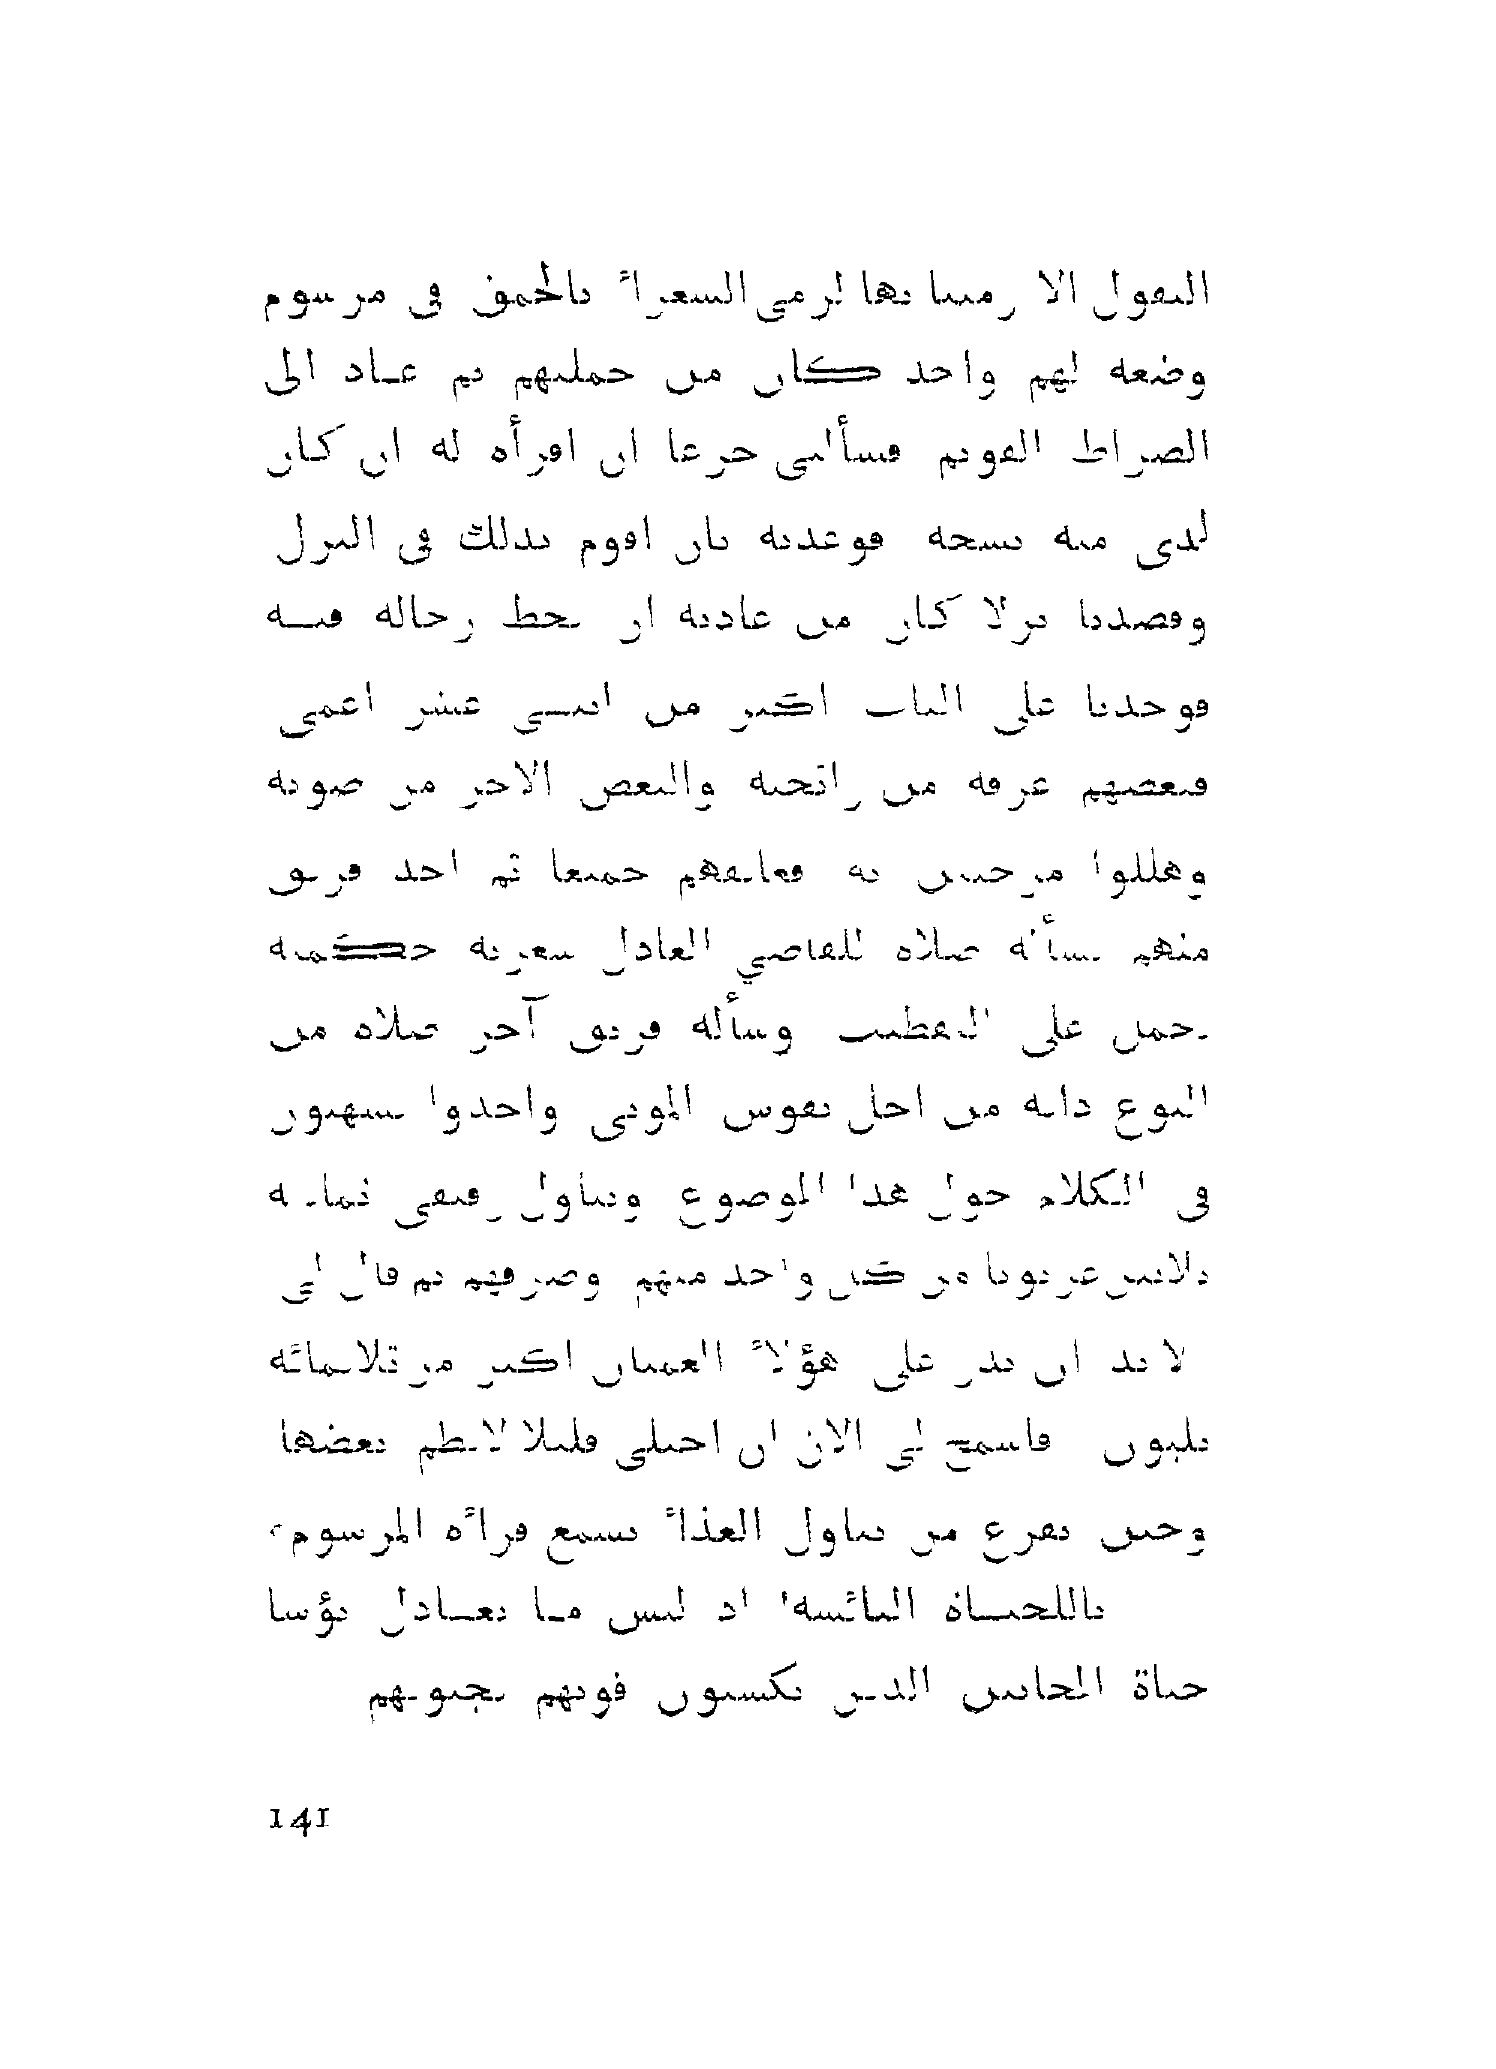 البقول الا رمينا بها لرمي الشعراء بالحمق في مرسوم
وضعه لهم واحد كان من جملتهم ثم عاد الى
الصراط القويم فسألني جزعا ان اقرأه له ان كان
لدي منه نسخة فوعدته بان اقوم بذلك في النزل
وقصدنا نزلا كان من عادته ان يحط رحاله فيه
فوجدنا على الباب اكثر من اثني عشر اعمى
فبعضهم عرفه من رائحته والبعض الاخر من صوته
وهللوا مرحبين به فعانقهم جميعا ثم اخذ فريق
منهم يسأله صلاة للقاضي العادل بشعرية حكمية
تحمل على التقطيب وسأله فريق آخر صلاة من
النوع ذاته من اجل نفوس الموتى واخذوا يسهبون
في الكلام حول هذا الموضوع وتناول رفيقي ثمانية
بلايين عربونا من كل واحد منهم وصرفهم ثم قال لي
لا بد ان تدر علي هؤلاء العميان اكثر من ثلاثمائة
بليون فاسمح لي الان ان اختلي قليلا لانظم بعضها
وحين نفرغ من تناول الغذاء نسمع قراءة المرسوم
ياللحياة البائسة! اذ ليس ما يعادل بؤسا
حياة المجانين الذين يكسبون قوتهم بجنونهم
141